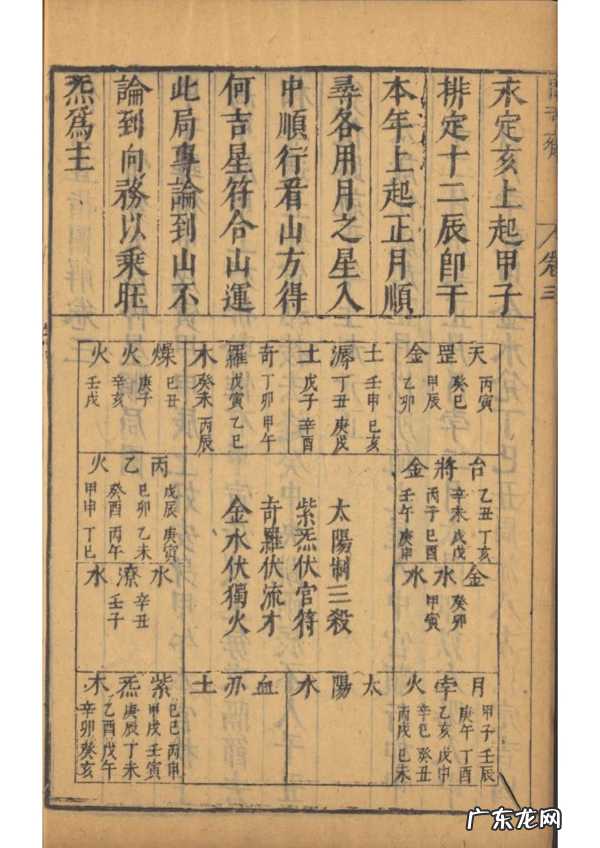 卷三
永定亥上起甲子
排定十二辰即于
本年上起正月順
尋各用月之星入
中順行看山方得
何吉星符合山運
此局專論到山不
論到向務以乘旺
炁為主
天罡金
丙寅
癸巳
甲辰
乙卯
土潺土
壬申 己亥
丁丑 庚戌
戊子 辛酉
奇羅木
丁卯 甲午
戊寅 乙巳
癸未 丙辰
燥火火
己丑
庚子
辛亥
壬戌
台將金
乙丑 丁亥
辛未 戊戌
丙子 己酉
壬午 庚申
太陽制三殺
紫炁伏官符
奇羅伏流才
金水伏獨火
丙乙火
戊辰 庚寅
己卯 乙未
癸酉 丙午
甲申 丁巳
金水水
癸卯
甲寅
水潦水
辛丑
壬子
月孛火
甲子 壬辰
庚午 丁酉
乙亥 戊申
辛巳 癸丑
丙戌 己未
太陽水
血刃土
紫炁木
己巳 丙申
甲戌 壬寅
庚辰 丁未
乙酉 戊午
辛卯 癸亥
广东龙网